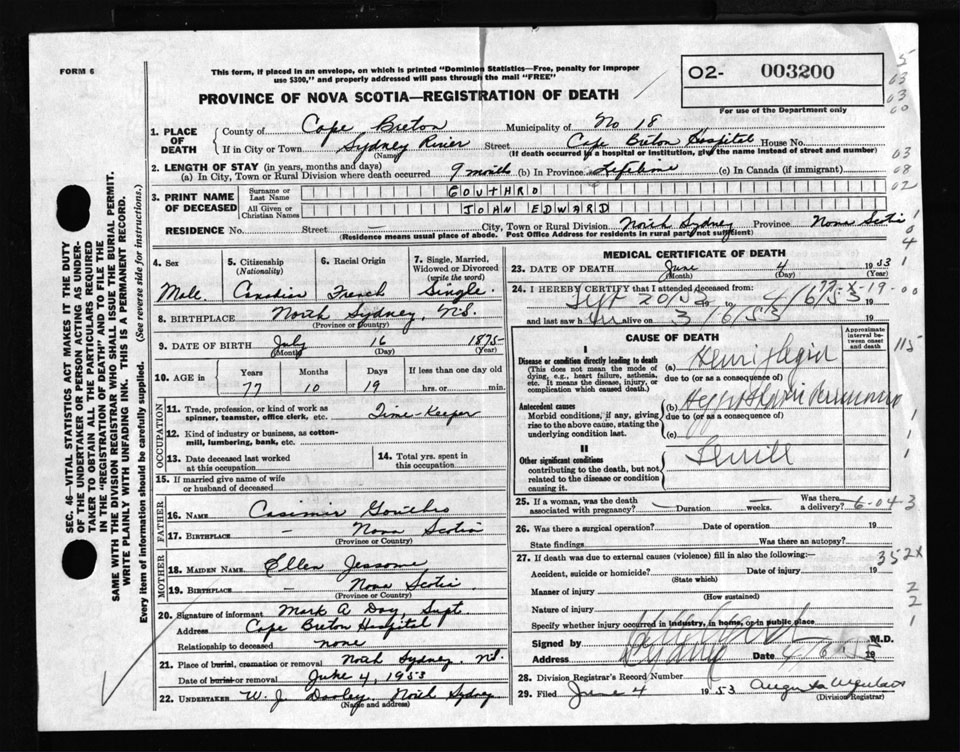 FORM 6
This form, if placed in an envelope, on which is printed "Dominion Statistics—Free, penalty for improper
use $300," and properly addressed will pass through the mail "FREE"
02- 003200
For use of the Department only
PROVINCE OF NOVA SCOTIA—REGISTRATION OF DEATH
1. PLACE OF DEATH
County of Cape Breton Municipality of No 18
If in City or Town Sydney River Street Cape Breton Hospital House No.
(Name) (If death occurred in a hospital or institution, give the name instead of street and number)
2. LENGTH OF STAY (in years, months and days)
(a) In City, Town or Rural Division where death occurred 9 months (b) In Province Lifetime (c) In Canada (if immigrant)
3. PRINT NAME OF DECEASED
Surname or Last Name GOUTHRO
All Given or Christian Names JOHN EDWARD
RESIDENCE No. Street — City, Town or Rural Division North Sydney Province Nova Scotia
(Residence means usual place of abode. Post Office Address for residents in rural part not sufficient)
4. Sex Male
5. Citizenship (Nationality) Canadian
6. Racial Origin French
7. Single, Married, Widowed or Divorced (write the word) Single
8. BIRTHPLACE North Sydney, N.S.
(Province or Country)
9. DATE OF BIRTH July 16 1875
(Month) (Day) (Year)
10. AGE in Years Months Days If less than one day old
77 10 19 hrs. or min.
OCCUPATION
11. Trade, profession, or kind of work as spinner, teamster, office clerk, etc. Time-Keeper
12. Kind of industry or business, as cotton-mill, lumbering, bank, etc.
13. Date deceased last worked at this occupation
14. Total yrs. spent in this occupation
15. If married give name of wife or husband of deceased
FATHER
16. NAME Casimir Gouthro
17. BIRTHPLACE — Nova Scotia
(Province or Country)
MOTHER
18. MAIDEN NAME Ellen Jessome
19. BIRTHPLACE — Nova Scotia
(Province or Country)
20. Signature of informant Mark A Day, Supt.
Address Cape Breton Hospital
Relationship to deceased none
21. Place of burial, cremation or removal North Sydney, N.S.
Date of burial or removal June 4, 1953
22. UNDERTAKER W. J. Dooley, North Sydney
(Name and address)
MEDICAL CERTIFICATE OF DEATH
23. DATE OF DEATH June 4 1953
(Month) (Day) (Year)
24. I HEREBY CERTIFY that I attended deceased from:
Sept 20/52 to 4/6/53
and last saw him alive on 3/6/53
CAUSE OF DEATH
Approximate interval between onset and death
I
Disease or condition directly leading to death
(This does not mean the mode of dying, e.g., heart failure, asthenia, etc. It means the disease, injury, or complication which caused death.)
(a) Hemiplegia
due to (or as a consequence of)
Antecedent causes
Morbid conditions, if any, giving rise to the above cause, stating the underlying condition last.
(b)
due to (or as a consequence of)
(c)
II
Other significant conditions contributing to the death, but not related to the disease or condition causing it.
Senile
25. If a woman, was the death associated with pregnancy? Duration weeks. Was there a delivery?
6-04-3
26. Was there a surgical operation? Date of operation 19
State findings Was there an autopsy?
27. If death was due to external causes (violence) fill in also the following:—
352x
Accident, suicide or homicide? Date of injury 19
(State which)
Manner of injury
(How sustained)
Nature of injury
Specify whether injury occurred in industry, in home, or in public place
Signed by M.D.
Address Sydney Date 4/6/53 19
28. Division Registrar's Record Number
29. Filed June 4 1953
(Division Registrar)
SEC. 46—VITAL STATISTICS ACT MAKES IT THE DUTY
OF THE UNDERTAKER OR PERSON ACTING AS UNDER-
TAKER TO OBTAIN ALL THE PARTICULARS REQUIRED
IN THE "REGISTRATION OF DEATH" AND TO FILE THE
SAME WITH THE DIVISION REGISTRAR WHO SHALL ISSUE THE BURIAL PERMIT.
WRITE PLAINLY WITH UNFADING INK. THIS IS A PERMANENT RECORD.
Every item of information should be carefully supplied. (See reverse side for instructions.)